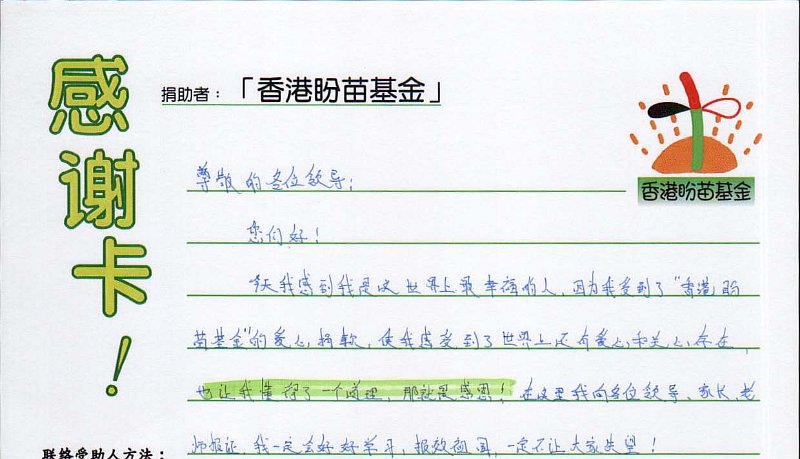 感谢卡！
捐助者：「香港盼苗基金」
香港盼苗基金
尊敬的各位领导：
您们好！
今天我感到我是这世界上最幸福的人，因为我受到了“香港盼
苗基金”的爱心捐款，使我感受到了世界上还有爱心和关心存在，
也让我懂得了一个道理，那就是感恩！在这里我向各位领导、家长、老
师保证，我一定会好好学习，报效祖国，一定不让大家失望！
联络受助人方法：